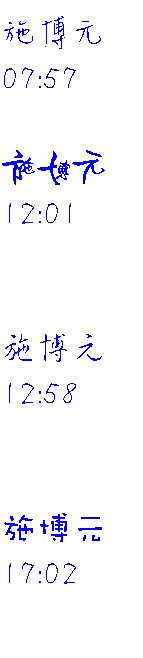 施博元
07:57
施博元
12:01
施博元
12:58
施博元
17:02